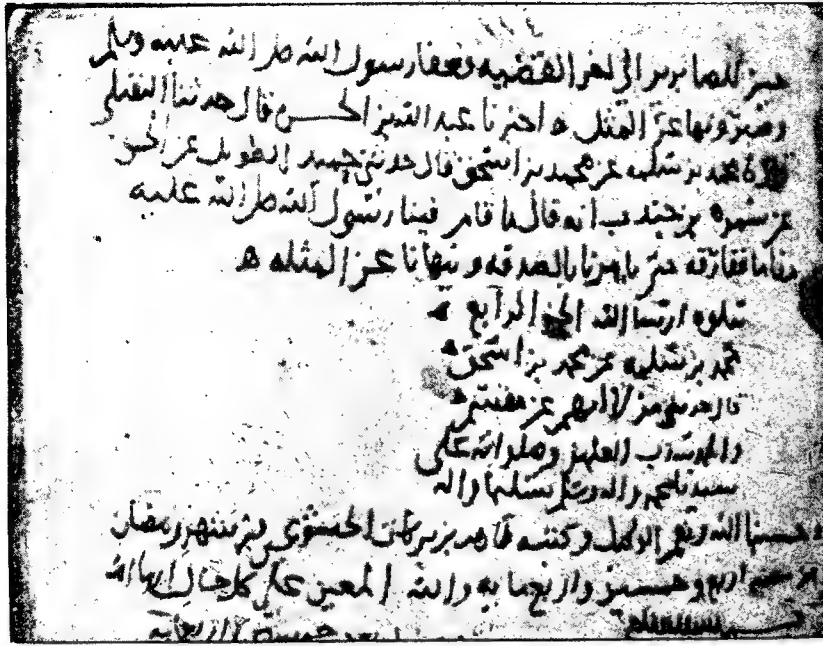 ١١٤
للصابرين الى اخر القصه فعفا رسول الله صلى الله عليه وسلم
وصبر ونها عن المثل ه اخبرنا عبد الله بن الحسن قال حدثنا النفيلي
محمد بن سلمه عن محمد بن اسحق قال حدثني حميد الطويل عن الحسن
عن سمره بن جندب انه قال ما قام فينا رسول الله صلى الله عليه
مقاما ففارقه حتى يامرنا بالصدقه وينهانا عن المثله ه
يتلوه ان شا الله الجز الرابع ه
محمد بن سلمه عن محمد بن اسحق ه
قال حدثني من لا اتهم عن مقسم ه
والحمد لله رب العلمين وصلواته على
سيدنا محمد واله وسلم تسليما واله
وحسبنا الله ونعم الوكيل وكتبه طاهر بن بركات الخشوعي في شهر رمضان
من سنه اربع وخمسين واربع مايه والله المعين على كل حال
خمسين واربعمايه